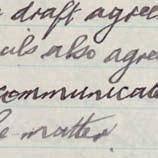 draft agree
also agre
communicat
matter.